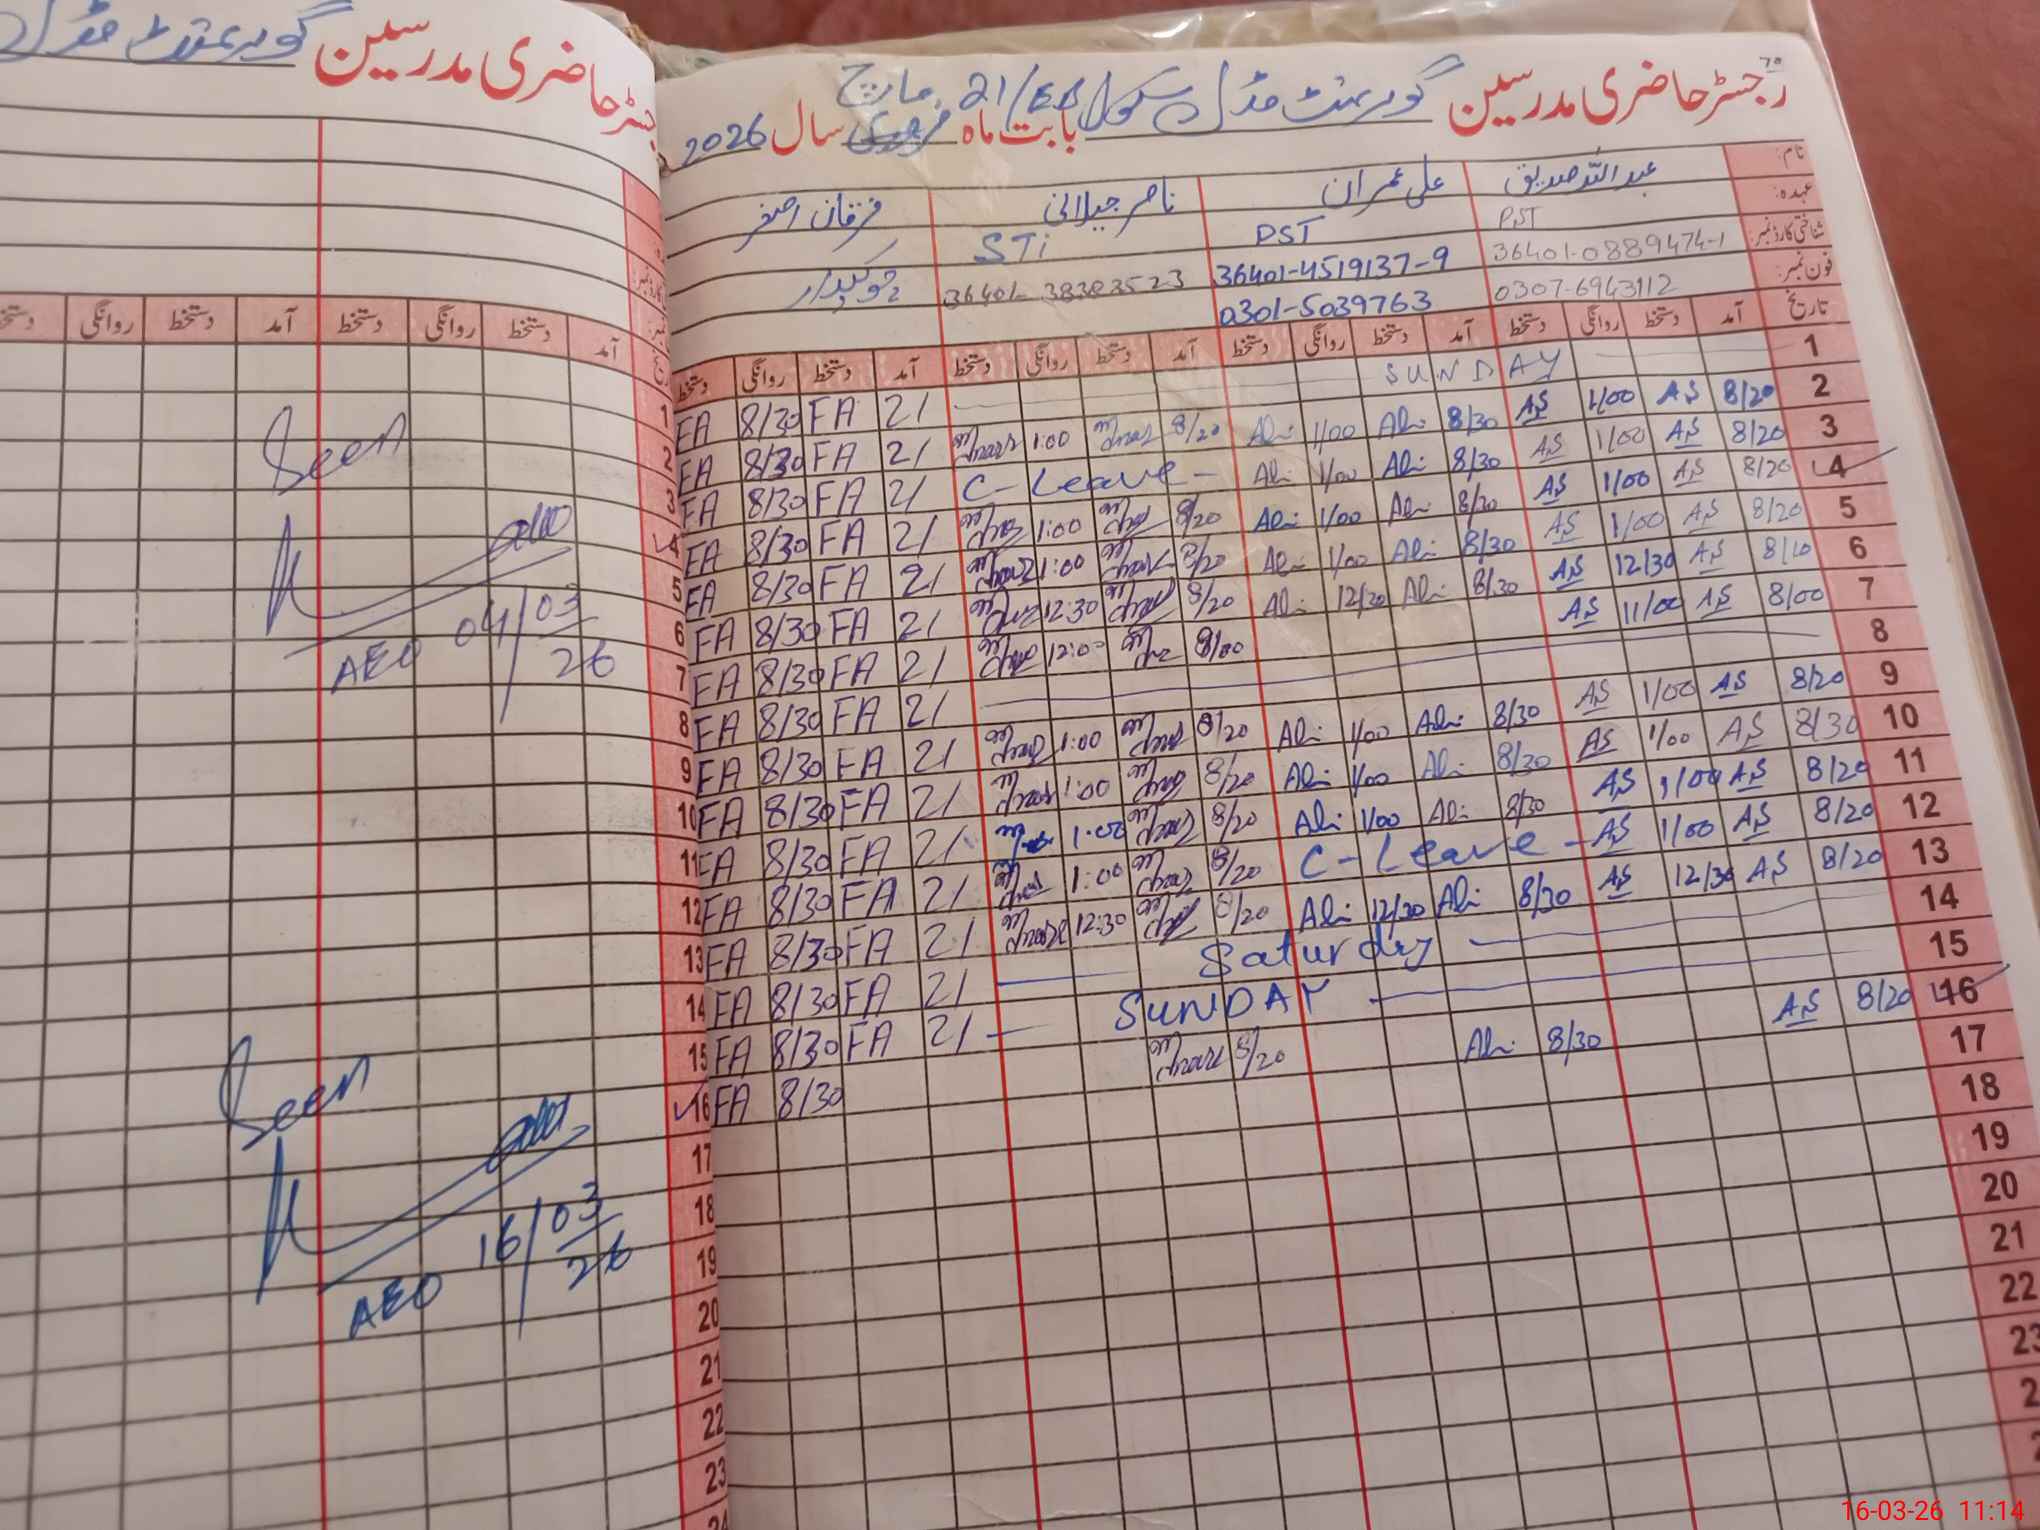 رجسٹر حاضری مدرسین گورنمنٹ مڈل سکول 21/EB
بابت ماہ مارچ سال 2026
نام: عبداللہ صدیق علی عمران ناصر جیلانی فرقان اصغر
عہدہ: PST PST STi چوکیدار
شناختی کارڈ نمبر: 36401-0889474-1 36401-4519137-9 36401-38383523
فون نمبر: 0307-6943112 0301-5039763
تاریخ آمد دستخط روانگی دستخط آمد دستخط روانگی دستخط آمد دستخط روانگی دستخط آمد دستخط روانگی دستخط
1 SUNDAY 21 FA 8/30 FA
2 8/20 AS 1/00 AS 8/30 Ali 1/00 Ali 8/20 1:00 21 FA 8/30 FA
3 8/20 AS 1/00 AS 8/30 Ali 1/00 Ali C-Leave- 21 FA 8/30 FA
4 8/20 AS 1/00 AS 8/30 Ali 1/00 Ali 8/20 1:00 21 FA 8/30 FA
5 8/20 AS 1/00 AS 8/30 Ali 1/00 Ali 8/20 1:00 21 FA 8/30 FA
6 8/10 AS 12/30 AS 8/30 Ali 12/30 Ali 8/20 12:30 21 FA 8/30 FA
7 8/00 AS 11/00 AS 8/00 12:00 21 FA 8/30 FA
8 21 FA 8/30 FA
9 8/20 AS 1/00 AS 8/30 Ali 1/00 Ali 8/20 1:00 21 FA 8/30 FA
10 8/30 AS 1/00 AS 8/30 Ali 1/00 Ali 8/20 1:00 21 FA 8/30 FA
11 8/20 AS 1/00 AS 8/30 Ali 1/00 Ali 8/20 1:00 21 FA 8/30 FA
12 8/20 AS 1/00 AS C-Leave- 8/20 1:00 21 FA 8/30 FA
13 8/20 AS 12/30 AS 8/30 Ali 12/30 Ali 8/20 12:30 21 FA 8/30 FA
14 Saturday 21 FA 8/30 FA
15 SUNDAY 21 FA 8/30 FA
16 8/20 AS 8/30 Ali 8/20 8/30 FA
17
18
19
20
21
22
23
رجسٹر حاضری مدرسین گورنمنٹ مڈل
آمد دستخط روانگی دستخط آمد دستخط روانگی دستخط
1
2
3
4
5
6
7
8
9
10
11
12
13
14
15
16
17
18
19
20
21
22
23
24
Seen
AEO 04/03/26
Seen
AEO 16/03/26
16-03-26 11:14